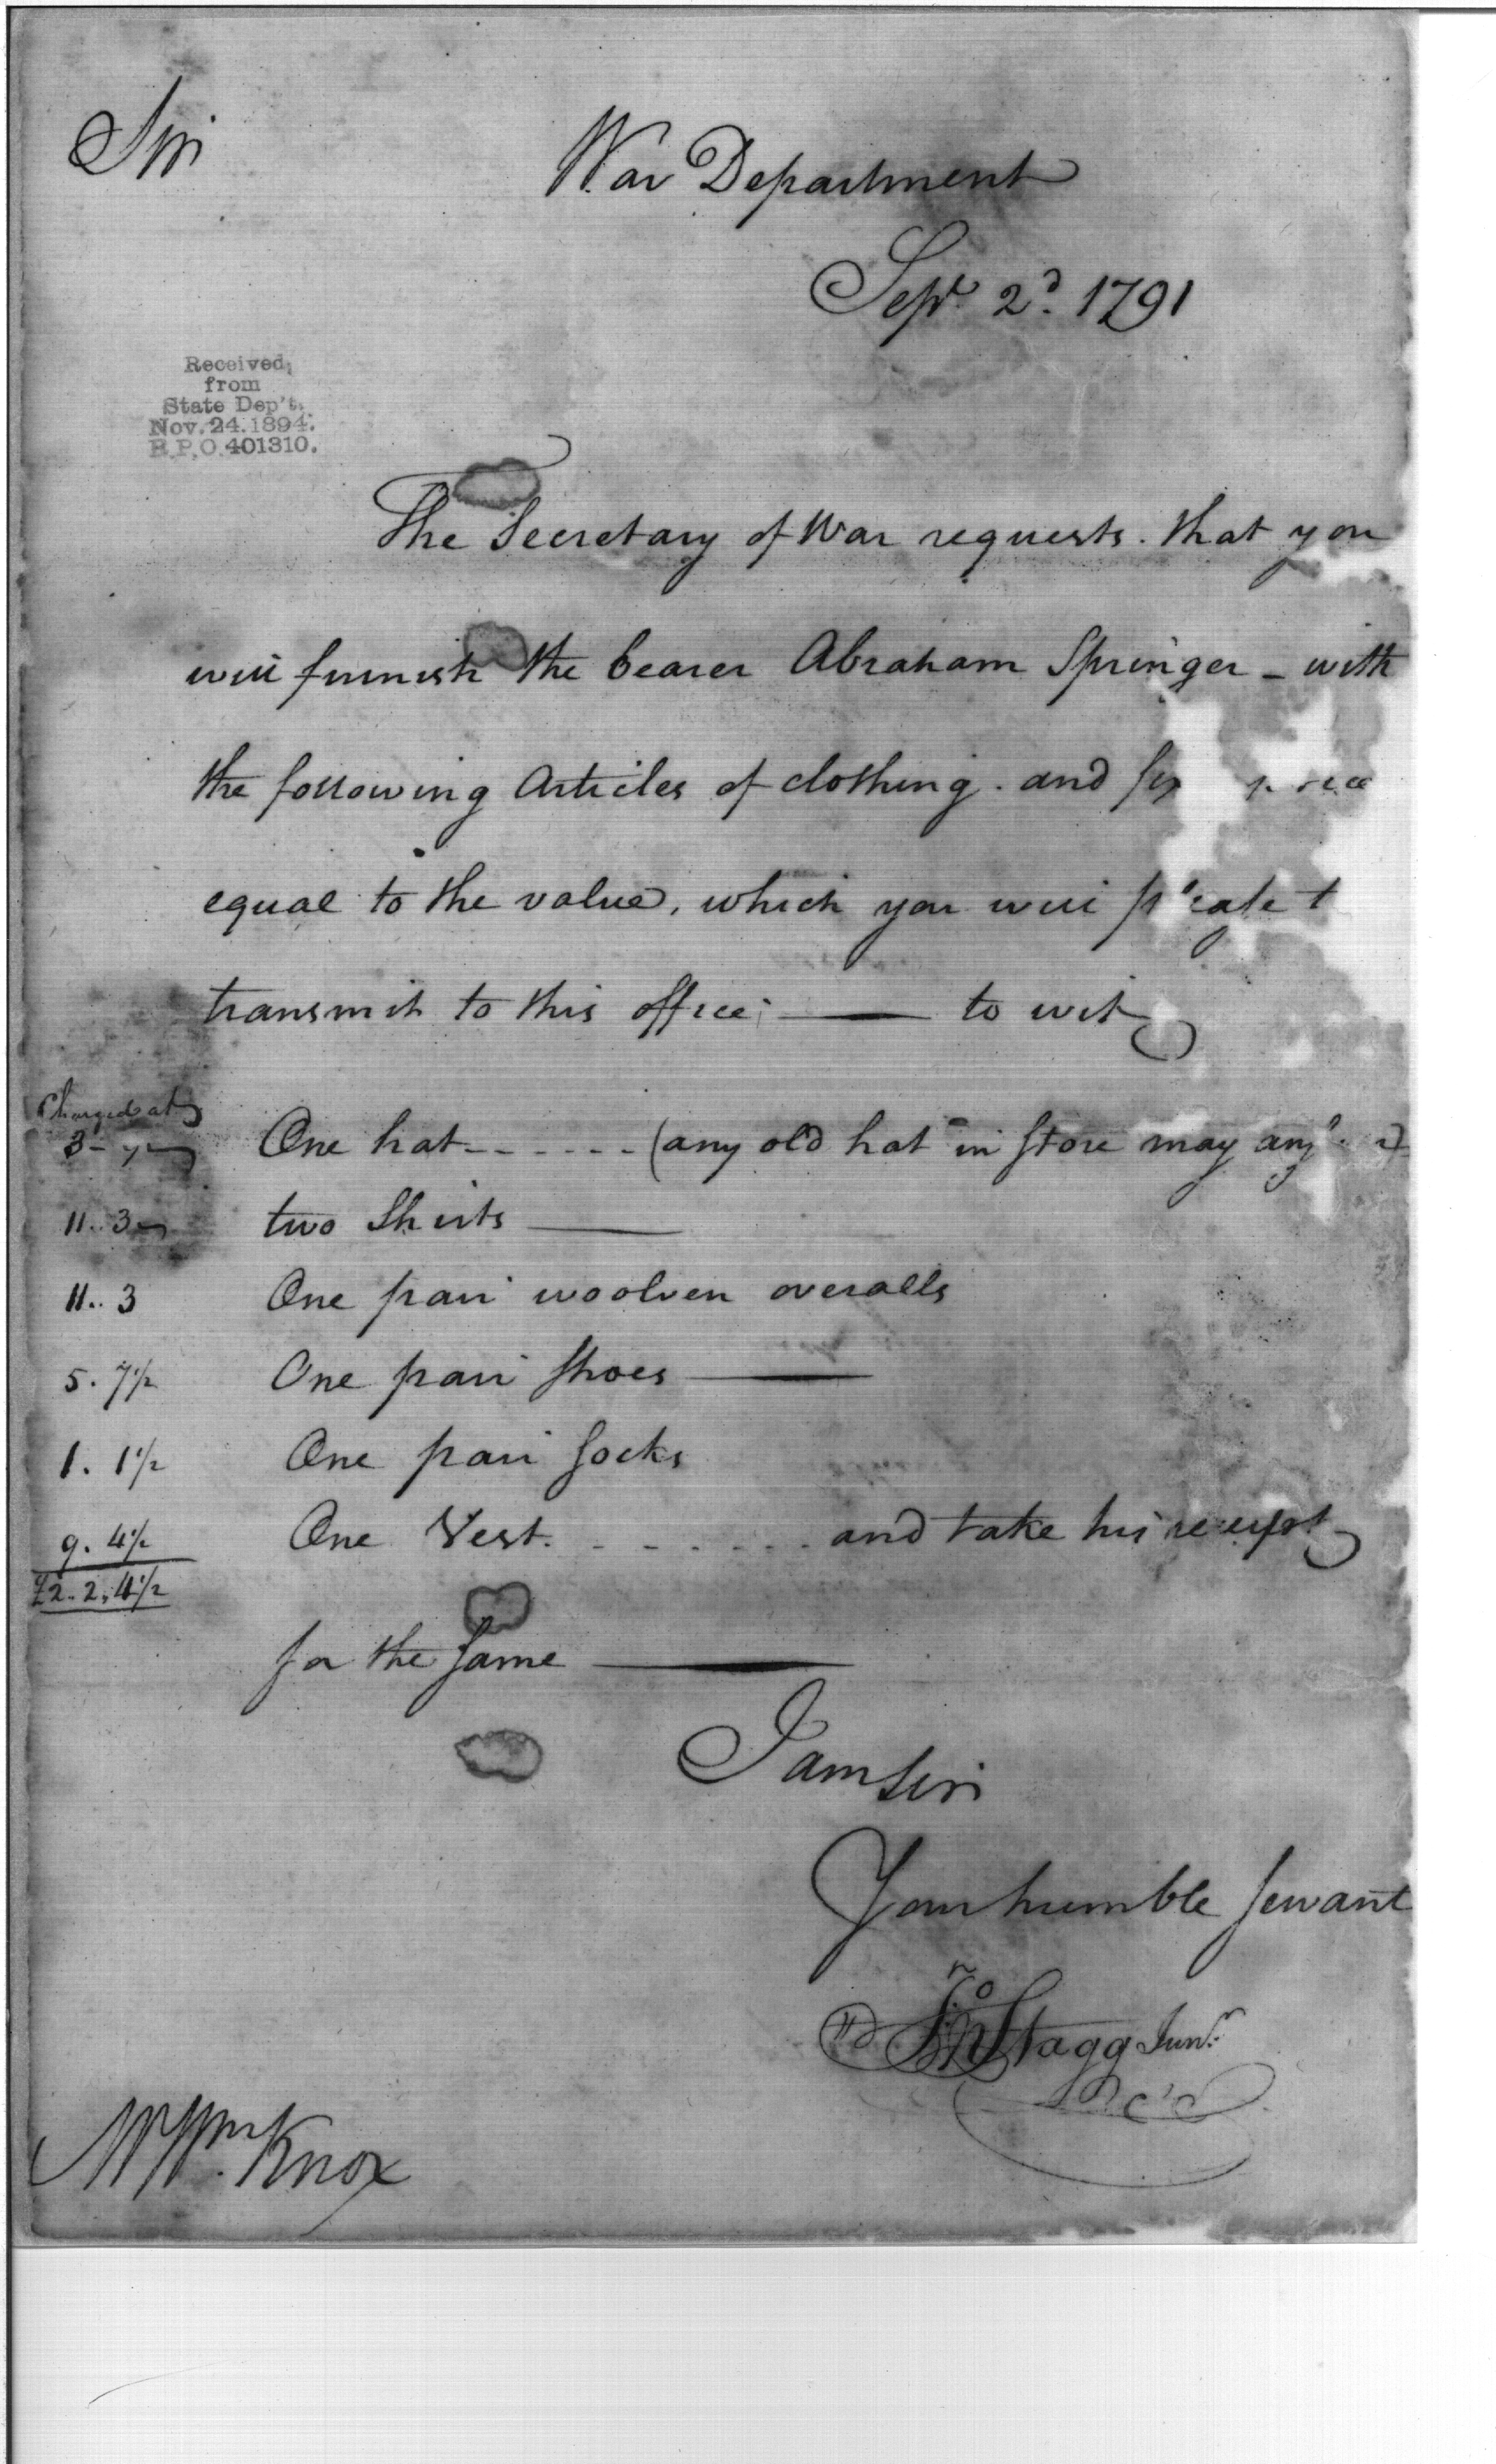 Sir
War Department
Sepr. 2d. 1791
Received
from
State Dep't.
Nov. 24. 1894.
R.P.O. 401310.
The Secretary of War requests. that you
will furnish the bearer Abraham Springer – with
the following Articles of clothing. and
equal to the value, which you will
transmit to this office; —— to wit
Charged at
One hat - - - - - - (any old hat in store may
11.. 3 two Shirts ——
11.. 3 One pair woolven overalls
5. 7½ One pair Shoes ——
1. 1½ One pair socks
9. 4½ One Vest. - - - - - - and take his receipt
£2. 2. 4½
for the same ——
I am Sir
Your humble servant
Jno Stagg Junr.
Mr Wm. Knox